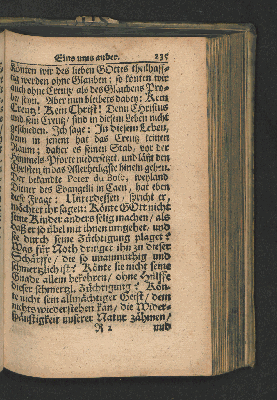 Eins ums ander. 235
könten wir des lieben GOttes theilhaff-
tig werden ohne Glauben: so könten wir
auch ohne Creutz als des Glaubens Pro-
be seyn. Aber nun bleibets dabey: Kein
Creutz! Kein Christ! Denn Christus
und sein Creutz, sind in diesem Leben nicht
geschieden. Ich sage: In diesem Leben,
dann in jenem hat das Creutz keinen
Raum; daher es seinen Stab vor der
Himmels-Pforte niedersetzt, und läst den
Christen in das Allerheiligste hinein gehen.
Der berühmte Peter du Bosc, weyland
Diener des Evangelii in Caen, hat eben
diese Frage: Unterdessen, spricht er,
möchtet ihr sagen: Könte GOtt nicht
seine Kinder anders selig machen, als
daß er so übel mit ihnen umgehet, und
sie durch seine Züchtigung plaget?
Was für Noth dringet ihn zu dieser
Schärffe, die so unanmuthig und
schmerzlich ist? Könte sie nicht seine
Gnade allein bekehren, ohne Hülffe
dieser schmertzl. Züchtigung? Kön-
te nicht sein allmächtiger Geist, dem
nichts wiederstehen kan, die Wider-
spänstigkeit unserer Natur zähmen,
R 2 und